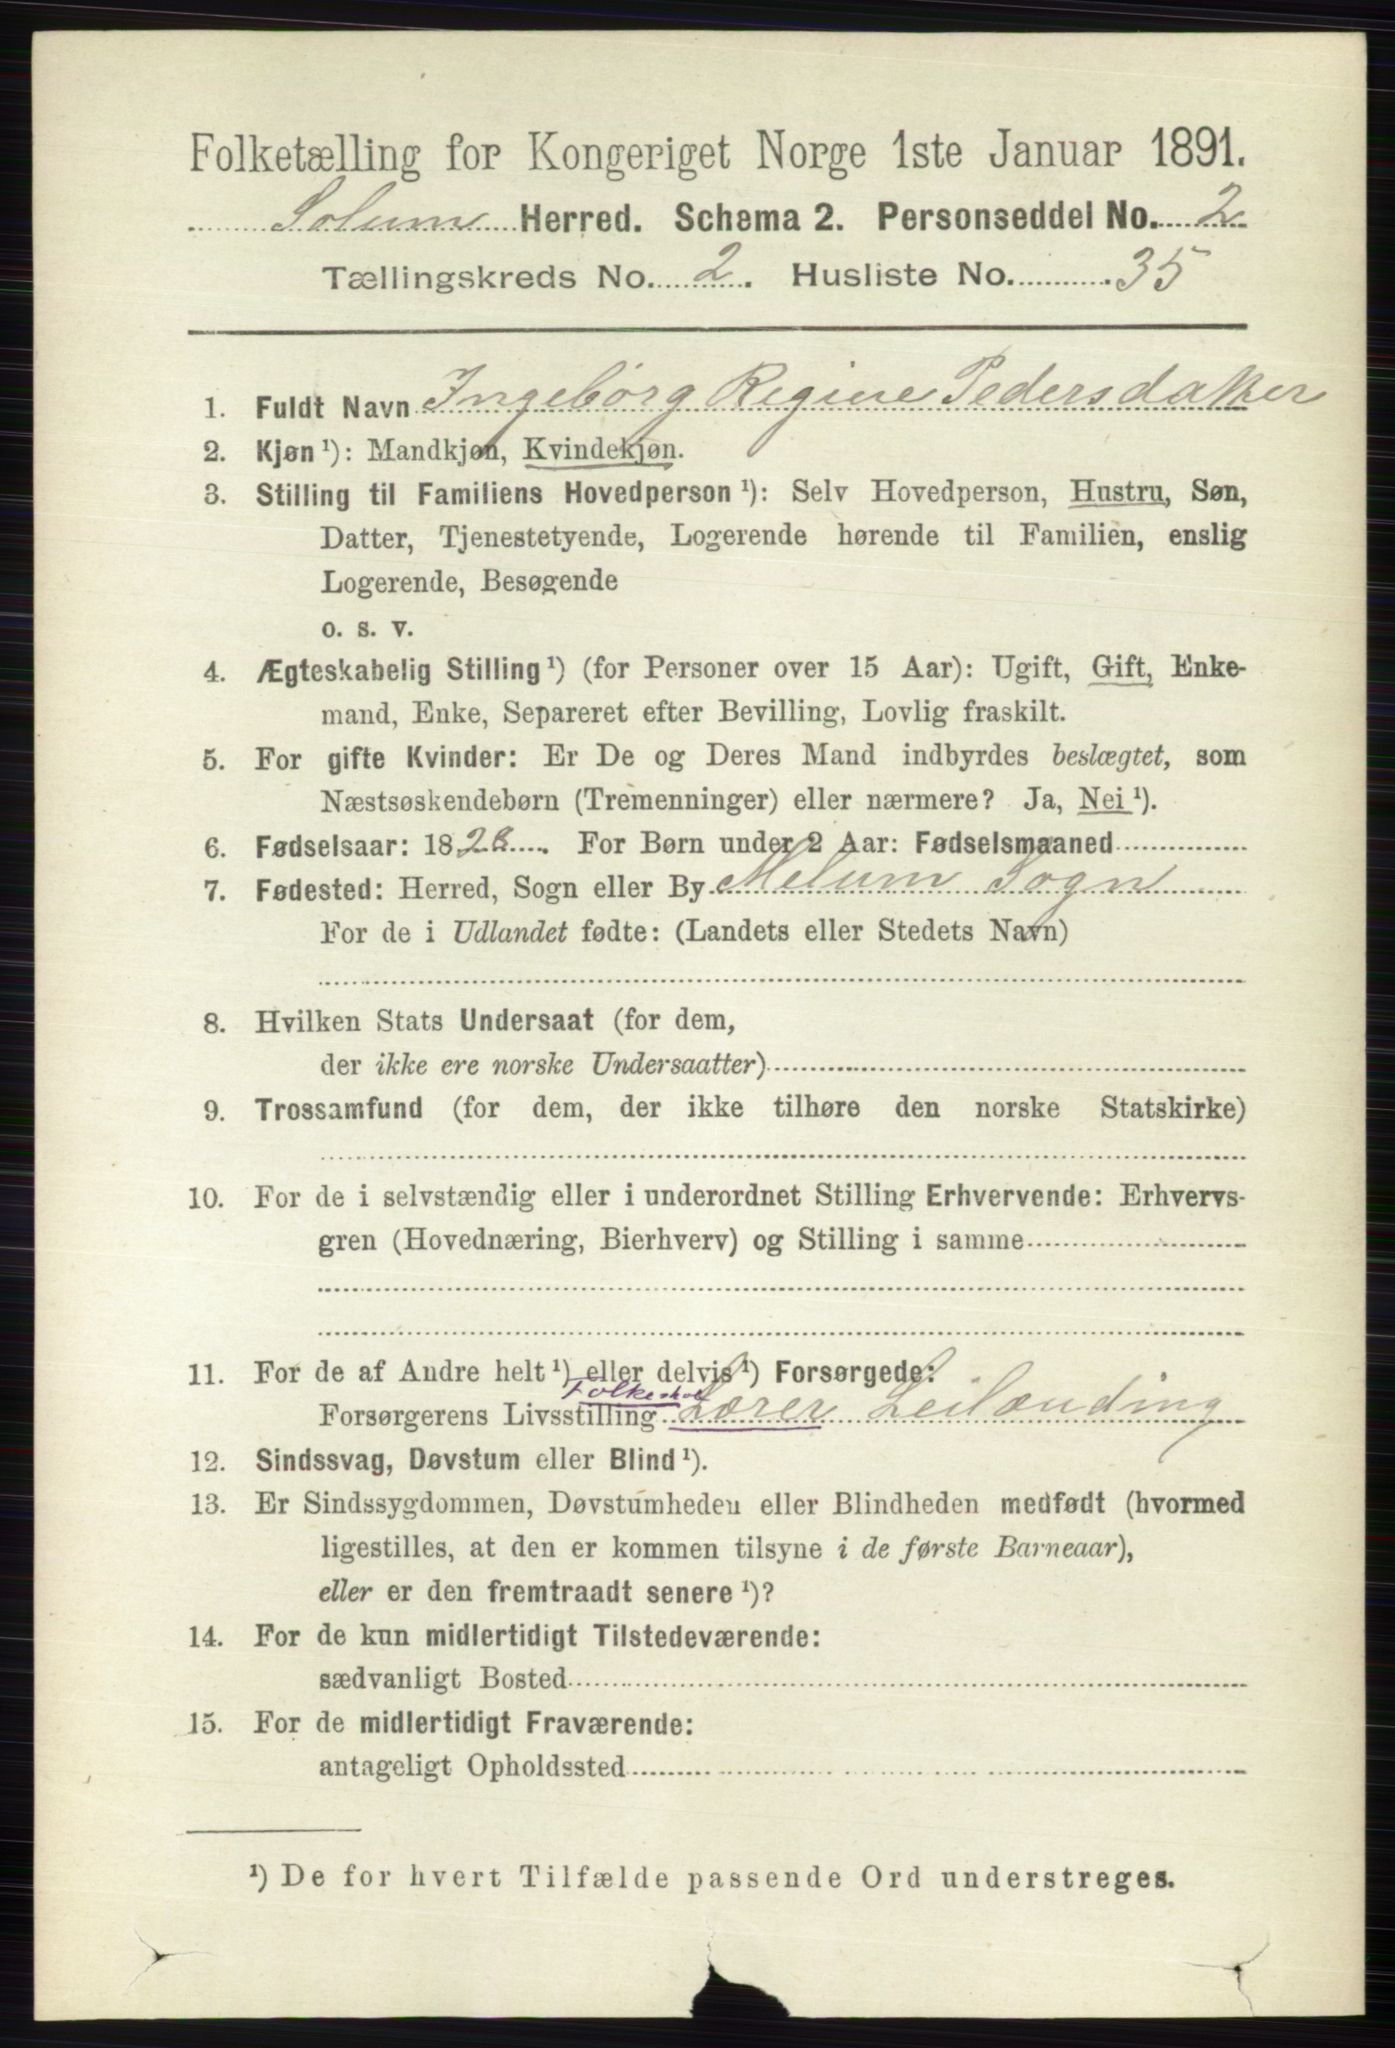 Folketælling for Kongeriget Norge 1ste Januar 1891.
Solum Herred. Schema 2. Personseddel No. 2
Tællingskreds No. 2. Husliste No. 35
1. Fuldt Navn Ingebørg Regine Pedersdatter
2. Kjøn ¹): Mandkjøn, Kvindekjøn.
3. Stilling til Familiens Hovedperson ¹): Selv Hovedperson, Hustru, Søn,
Datter, Tjenestetyende, Logerende hørende til Familien, enslig
Logerende, Besøgende
o. s. v.
4. Ægteskabelig Stilling ¹) (for Personer over 15 Aar): Ugift, Gift, Enke-
mand, Enke, Separeret efter Bevilling, Lovlig fraskilt.
5. For gifte Kvinder: Er De og Deres Mand indbyrdes beslægtet, som
Næstsøskendebørn (Tremenninger) eller nærmere? Ja, Nei ¹).
6. Fødselsaar: 1828. For Børn under 2 Aar: Fødselsmaaned
7. Fødested: Herred, Sogn eller By Melum Sogn
For de i Udlandet fødte: (Landets eller Stedets Navn)
8. Hvilken Stats Undersaat (for dem,
der ikke ere norske Undersaatter)
9. Trossamfund (for dem, der ikke tilhøre den norske Statskirke)
10. For de i selvstændig eller i underordnet Stilling Erhvervende: Erhvervs-
gren (Hovednæring, Bierhverv) og Stilling i samme
11. For de af Andre helt ¹) eller delvis ¹) Forsørgede:
Folkeskol
Forsørgerens Livsstilling Lærer Leilænding
12. Sindssvag, Døvstum eller Blind ¹).
13. Er Sindssygdommen, Døvstumheden eller Blindheden medfødt (hvormed
ligestilles, at den er kommen tilsyne i de første Barneaar),
eller er den fremtraadt senere ¹)?
14. For de kun midlertidigt Tilstedeværende:
sædvanligt Bosted
15. For de midlertidigt Fraværende:
antageligt Opholdssted
¹) De for hvert Tilfælde passende Ord understreges.